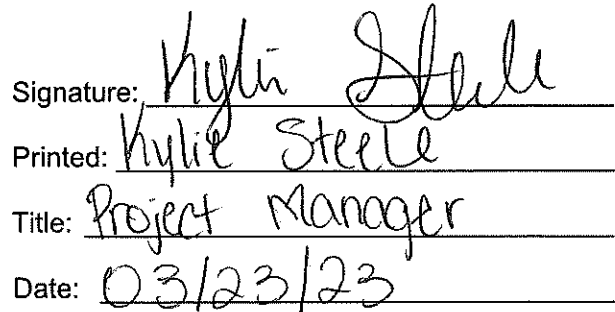 Signature: Kylie Steele
Printed: Kylie Steele
Title: Project Manager
Date: 03/23/23